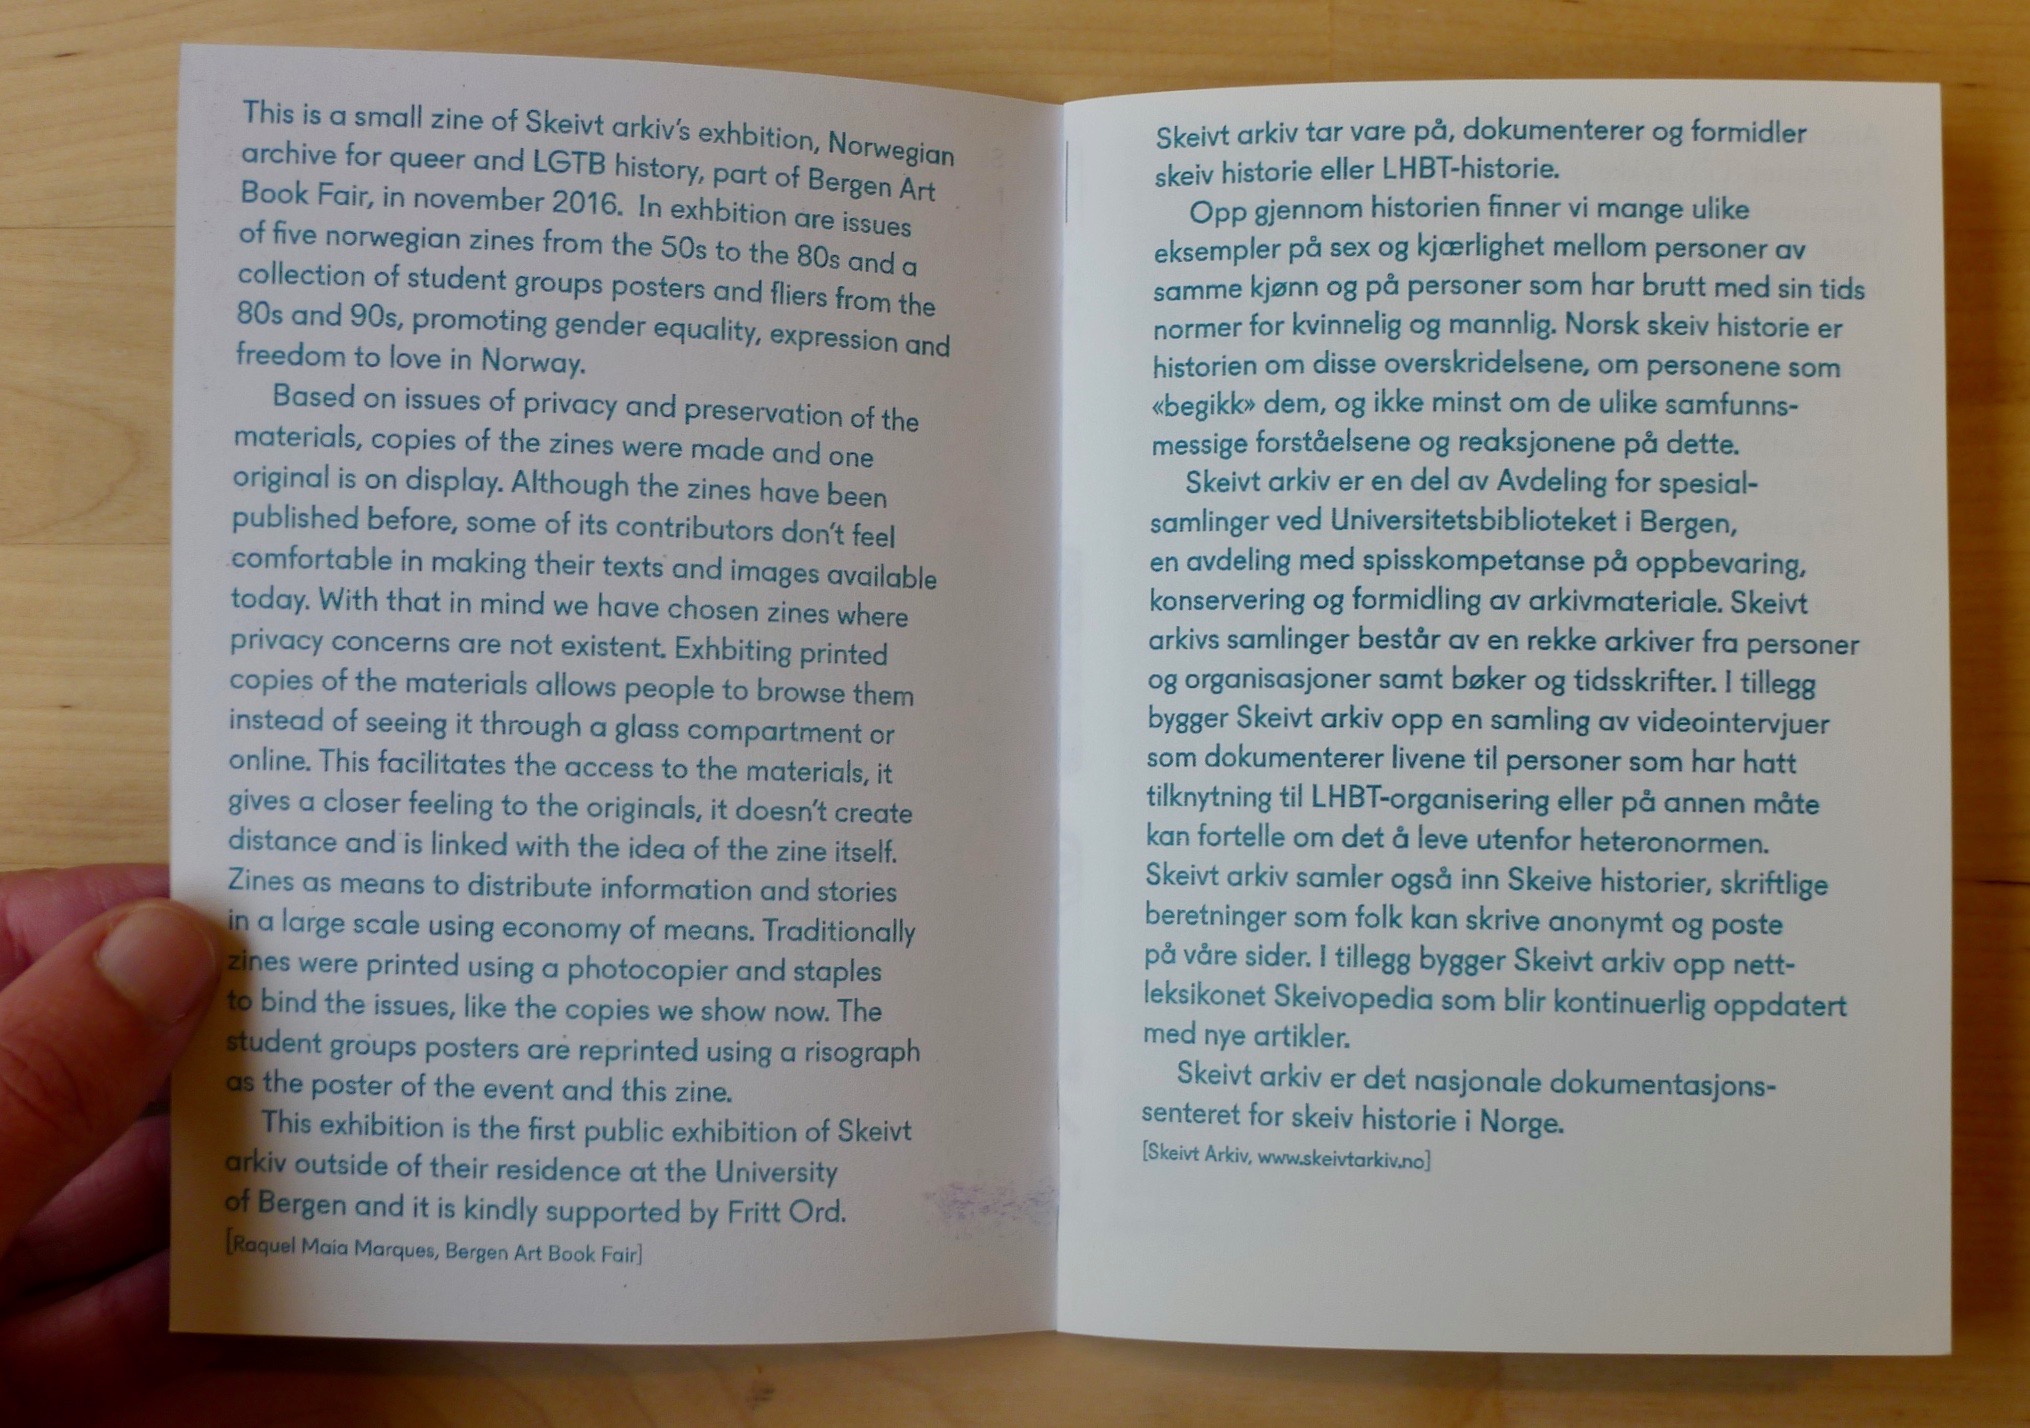 This is a small zine of Skeivt arkiv's exhbition, Norwegian
archive for queer and LGTB history, part of Bergen Art
Book Fair, in november 2016.  In exhbition are issues
of five norwegian zines from the 50s to the 80s and a
collection of student groups posters and fliers from the
80s and 90s, promoting gender equality, expression and
freedom to love in Norway.
Based on issues of privacy and preservation of the
materials, copies of the zines were made and one
original is on display. Although the zines have been
published before, some of its contributors don't feel
comfortable in making their texts and images available
today. With that in mind we have chosen zines where
privacy concerns are not existent. Exhbiting printed
copies of the materials allows people to browse them
instead of seeing it through a glass compartment or
online. This facilitates the access to the materials, it
gives a closer feeling to the originals, it doesn't create
distance and is linked with the idea of the zine itself.
Zines as means to distribute information and stories
in a large scale using economy of means. Traditionally
zines were printed using a photocopier and staples
to bind the issues, like the copies we show now. The
student groups posters are reprinted using a risograph
as the poster of the event and this zine.
This exhibition is the first public exhibition of Skeivt
arkiv outside of their residence at the University
of Bergen and it is kindly supported by Fritt Ord.
[Raquel Maia Marques, Bergen Art Book Fair]
Skeivt arkiv tar vare på, dokumenterer og formidler
skeiv historie eller LHBT-historie.
Opp gjennom historien finner vi mange ulike
eksempler på sex og kjærlighet mellom personer av
samme kjønn og på personer som har brutt med sin tids
normer for kvinnelig og mannlig. Norsk skeiv historie er
historien om disse overskridelsene, om personene som
«begikk» dem, og ikke minst om de ulike samfunns-
messige forståelsene og reaksjonene på dette.
Skeivt arkiv er en del av Avdeling for spesial-
samlinger ved Universitetsbiblioteket i Bergen,
en avdeling med spisskompetanse på oppbevaring,
konservering og formidling av arkivmateriale. Skeivt
arkivs samlinger består av en rekke arkiver fra personer
og organisasjoner samt bøker og tidsskrifter. I tillegg
bygger Skeivt arkiv opp en samling av videointervjuer
som dokumenterer livene til personer som har hatt
tilknytning til LHBT-organisering eller på annen måte
kan fortelle om det å leve utenfor heteronormen.
Skeivt arkiv samler også inn Skeive historier, skriftlige
beretninger som folk kan skrive anonymt og poste
på våre sider. I tillegg bygger Skeivt arkiv opp nett-
leksikonet Skeivopedia som blir kontinuerlig oppdatert
med nye artikler.
Skeivt arkiv er det nasjonale dokumentasjons-
senteret for skeiv historie i Norge.
[Skeivt Arkiv, www.skeivtarkiv.no]